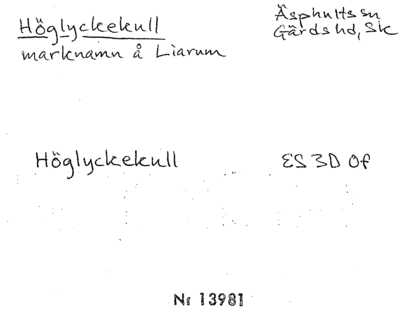 Höglyckekull
marknamn å Liarum
Äsphults sn
Gärds hd, Sk
Höglyckekull
ES 3D Of
Nr 13981